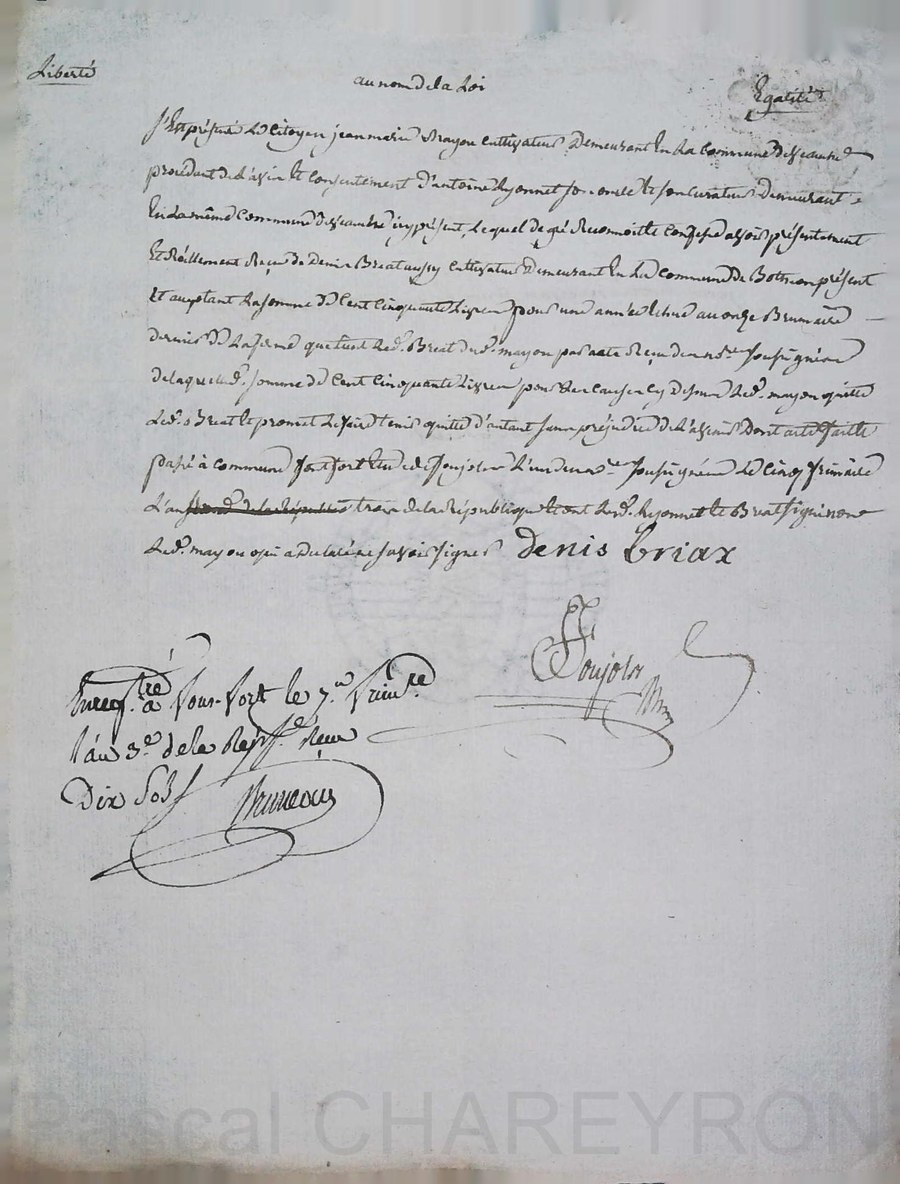 Liberté
au nom de la Loi
Egalité
S'Est présenté Le Citoyen jean marie mayon cultivateur Demeurant En La Commune de
procédant de L'avis Et Consentement d'antoine Reyonnet son oncle Et son curateur Demeurant
En La même Commune icy présent, Lequel de gré Reconnoit Et Confesse avoir présentement
Et Réellement Reçu de Denis Breat aussy cultivateur Demeurant En La Commune de Bothéon présent
Et acceptant La somme de Cent Cinquante Livres pour une année Echue au onze Brumaire
dernier de La ferme que tient Led. Breat dud. mayon par acte Reçu des nores. soussignés
de laquelle d. somme de Cent Cinquante Livres pour Les causes Cy dessus Led. mayon quitte
Led. Breat Et promet Le faire tenir quitte d'autant sans préjudice de L'avenir Dont acte fait Et
passé à commune fort Etude de Soujolor L'un des nores. soussignés Le Cinq frimaire
L'an trois de la République Et ont Led. Reyonnet Et Breat signé non
Led. mayon qui a déclaré ne savoir signer denis briax
Soujolor
Enregistré à fort Le 7. frimre
L'an 3e de la Rep. Reçu
Dix Sols Bruneau
Pascal CHAREYRON